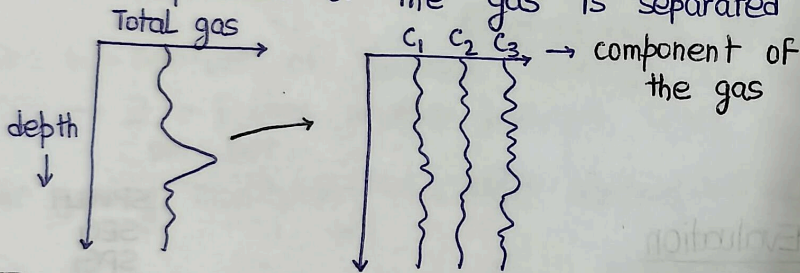 the gas is separated
Total gas
C1 C2 C3 → component of
the gas
depth
↓